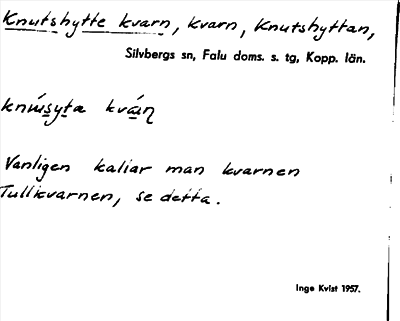 Knutshytte kvarn, kvarn, Knutshyttan,
Silvbergs sn, Falu doms. s. tg, Kopp. län.
Vanligen kallar man kvarnen
Tullkvarnen, se detta.
Inge Kvist 1957.